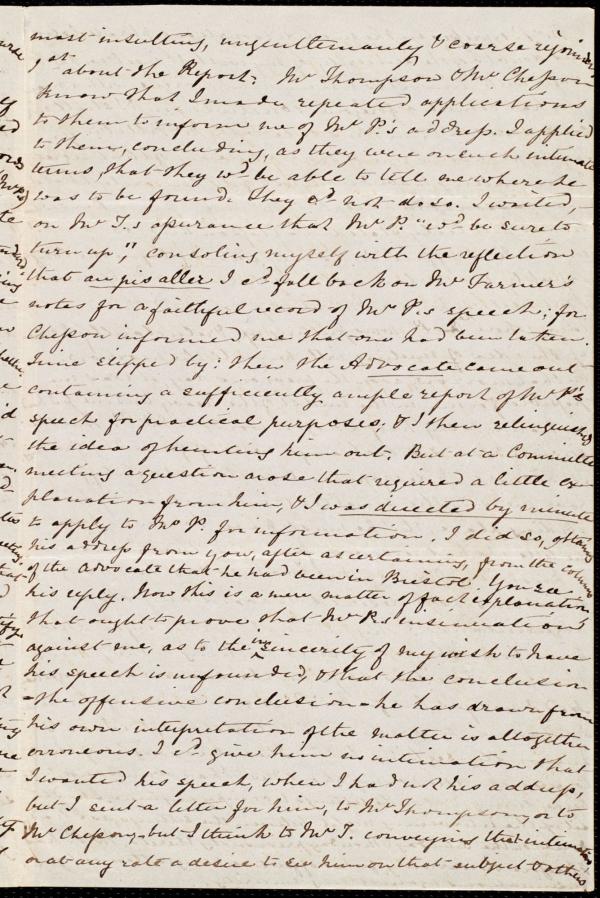 most insulting, ungentlemanly & coarse rejoinder
about the Report. Mr Thompson & Mr Chesson
know that I made repeated applications
to them to inform me of Mr P.'s address. I applied
to them, concluding, as they were on such intimate
terms, that they wd. be able to tell me where he
was to be found. They cd. not do so. I waited,
on Mr T.'s assurance that Mr P. "wd. be sure to
turn up," consoling myself with the reflection
that au pis aller I cd. fall back on Mr Farmer's
notes for a faithful record of Mr P.s speech; for
Chesson informed me that one had been taken.
Time slipped by: then the Advocate came out
containing a sufficiently ample report of Mr P's
speech for practical purposes; & I then relinquished
the idea of hunting him out. But at a Committee
meeting a question arose that required a little ex-
planation from him, & I was directed by minute
to apply to Mr P. for information. I did so, obtaining
his address from you, after ascertaining, from the columns
of the Advocate that he had been in Bristol. You saw
his reply. Now this is a mere matter of fact explanation,
that ought to prove that Mr P.s insinuation
against me, as to the insincerity of my wish to have
his speech is unfounded, & that the conclusion
- the offensive conclusion - he has drawn from
his own interpretation of the matter is altogether
erroneous. I cd. give him no intimation that
I wanted his speech, when I had not his address,
but I sent a letter for him, to Mr Thompson, or to
Mr Chesson, but I think to Mr T. conveying that intimation,
or at any rate a desire to see him on that subject & others